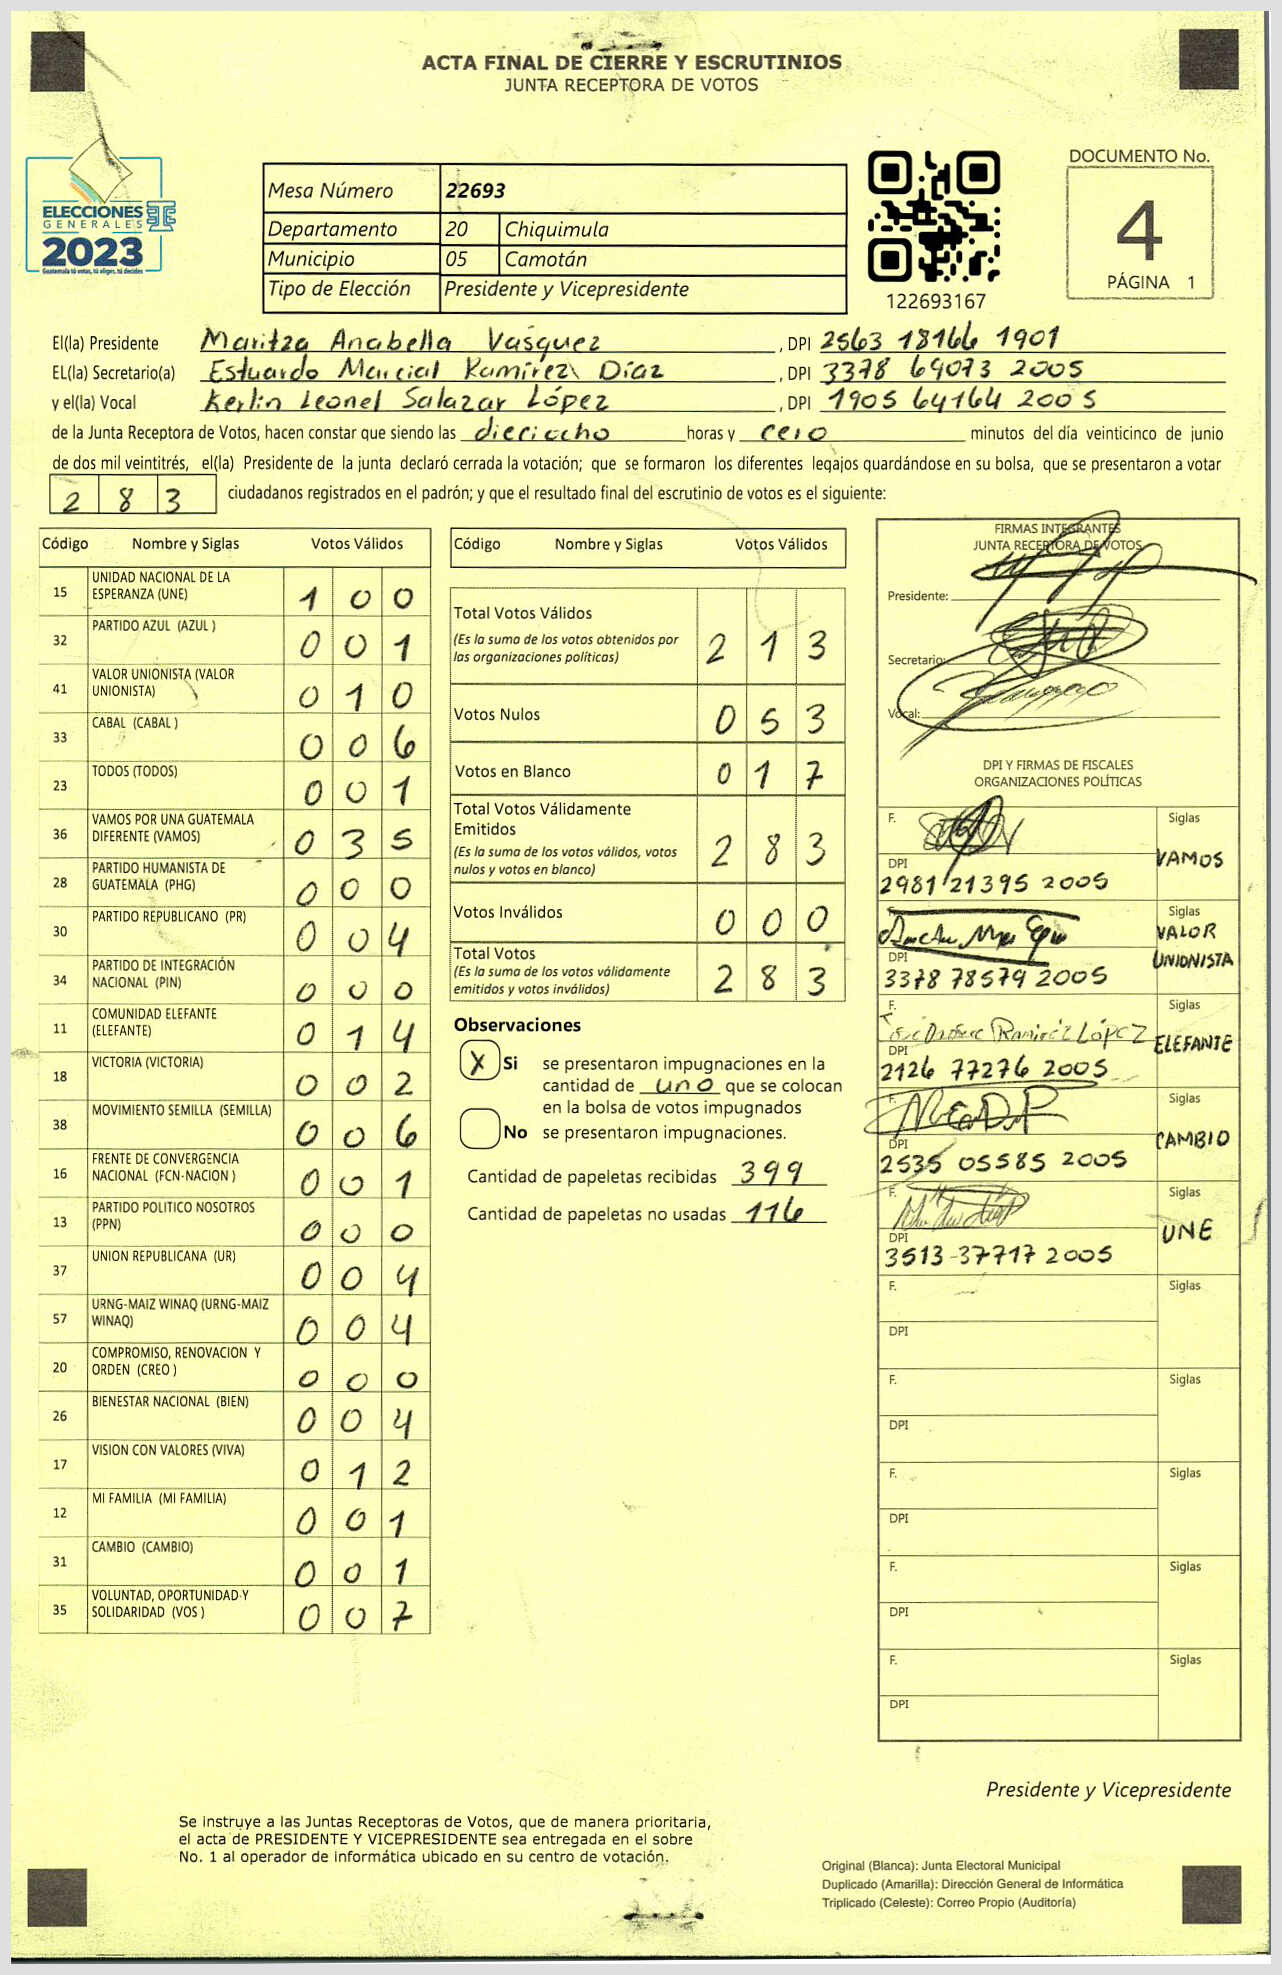 ACTA FINAL DE CIERRE Y ESCRUTINIOS
JUNTA RECEPTORA DE VOTOS
ELECCIONES
GENERALES
2023
Guatemala tú votas, tú eliges, tú decides
Mesa Número 22693
Departamento 20 Chiquimula
Municipio 05 Camotán
Tipo de Elección Presidente y Vicepresidente
122693167
DOCUMENTO No.
4
PÁGINA 1
El(la) Presidente Maritza Anabella Vasquez, DPI 2563 18166 1901
EL(la) Secretario(a) Estuardo Marcial Ramírez Díaz, DPI 3378 69073 2005
y el(la) Vocal Kerlin Leonel Salazar López, DPI 1905 64164 2005
de la Junta Receptora de Votos, hacen constar que siendo las dieciocho horas y cero minutos del día veinticinco de junio
de dos mil veintitrés, el(la) Presidente de la junta declaró cerrada la votación; que se formaron los diferentes legajos guardándose en su bolsa, que se presentaron a votar
283 ciudadanos registrados en el padrón; y que el resultado final del escrutinio de votos es el siguiente:
Código Nombre y Siglas Votos Válidos
15 UNIDAD NACIONAL DE LA ESPERANZA (UNE) 100
32 PARTIDO AZUL (AZUL ) 001
41 VALOR UNIONISTA (VALOR UNIONISTA) 010
33 CABAL (CABAL ) 006
23 TODOS (TODOS) 001
36 VAMOS POR UNA GUATEMALA DIFERENTE (VAMOS) 035
28 PARTIDO HUMANISTA DE GUATEMALA (PHG) 000
30 PARTIDO REPUBLICANO (PR) 004
34 PARTIDO DE INTEGRACIÓN NACIONAL (PIN) 000
11 COMUNIDAD ELEFANTE (ELEFANTE) 014
18 VICTORIA (VICTORIA) 002
38 MOVIMIENTO SEMILLA (SEMILLA) 006
16 FRENTE DE CONVERGENCIA NACIONAL (FCN-NACION ) 001
13 PARTIDO POLITICO NOSOTROS (PPN) 000
37 UNION REPUBLICANA (UR) 004
57 URNG-MAIZ WINAQ (URNG-MAIZ WINAQ) 004
20 COMPROMISO, RENOVACION Y ORDEN (CREO ) 000
26 BIENESTAR NACIONAL (BIEN) 004
17 VISION CON VALORES (VIVA) 012
12 MI FAMILIA (MI FAMILIA) 001
31 CAMBIO (CAMBIO) 001
35 VOLUNTAD, OPORTUNIDAD Y SOLIDARIDAD (VOS ) 007
Código Nombre y Siglas Votos Válidos
Total Votos Válidos 213
(Es la suma de los votos obtenidos por
las organizaciones políticas)
Votos Nulos 053
Votos en Blanco 017
Total Votos Válidamente
Emitidos 283
(Es la suma de los votos válidos, votos
nulos y votos en blanco)
Votos Inválidos 000
Total Votos 283
(Es la suma de los votos válidamente
emitidos y votos inválidos)
Observaciones
X Si se presentaron impugnaciones en la
cantidad de uno que se colocan
en la bolsa de votos impugnados
No se presentaron impugnaciones.
Cantidad de papeletas recibidas 399
Cantidad de papeletas no usadas 116
FIRMAS INTEGRANTES
JUNTA RECEPTORA DE VOTOS
Presidente:
Secretario:
Vocal:
DPI Y FIRMAS DE FISCALES
ORGANIZACIONES POLÍTICAS
F. Siglas
VAMOS
DPI
2981 21395 2005
F. Siglas
VALOR
UNIONISTA
DPI
3378 78579 2005
F. Siglas
Ramiréz López ELEFANTE
DPI
2126 77276 2005
F. Siglas
CAMBIO
DPI
2535 05585 2005
F. Siglas
UNE
DPI
3513-37717 2005
F. Siglas
DPI
F. Siglas
DPI
F. Siglas
DPI
F. Siglas
DPI
F. Siglas
DPI
Presidente y Vicepresidente
Se instruye a las Juntas Receptoras de Votos, que de manera prioritaria,
el acta de PRESIDENTE Y VICEPRESIDENTE sea entregada en el sobre
No. 1 al operador de informática ubicado en su centro de votación.
Original (Blanca): Junta Electoral Municipal
Duplicado (Amarilla): Dirección General de Informática
Triplicado (Celeste): Correo Propio (Auditoría)